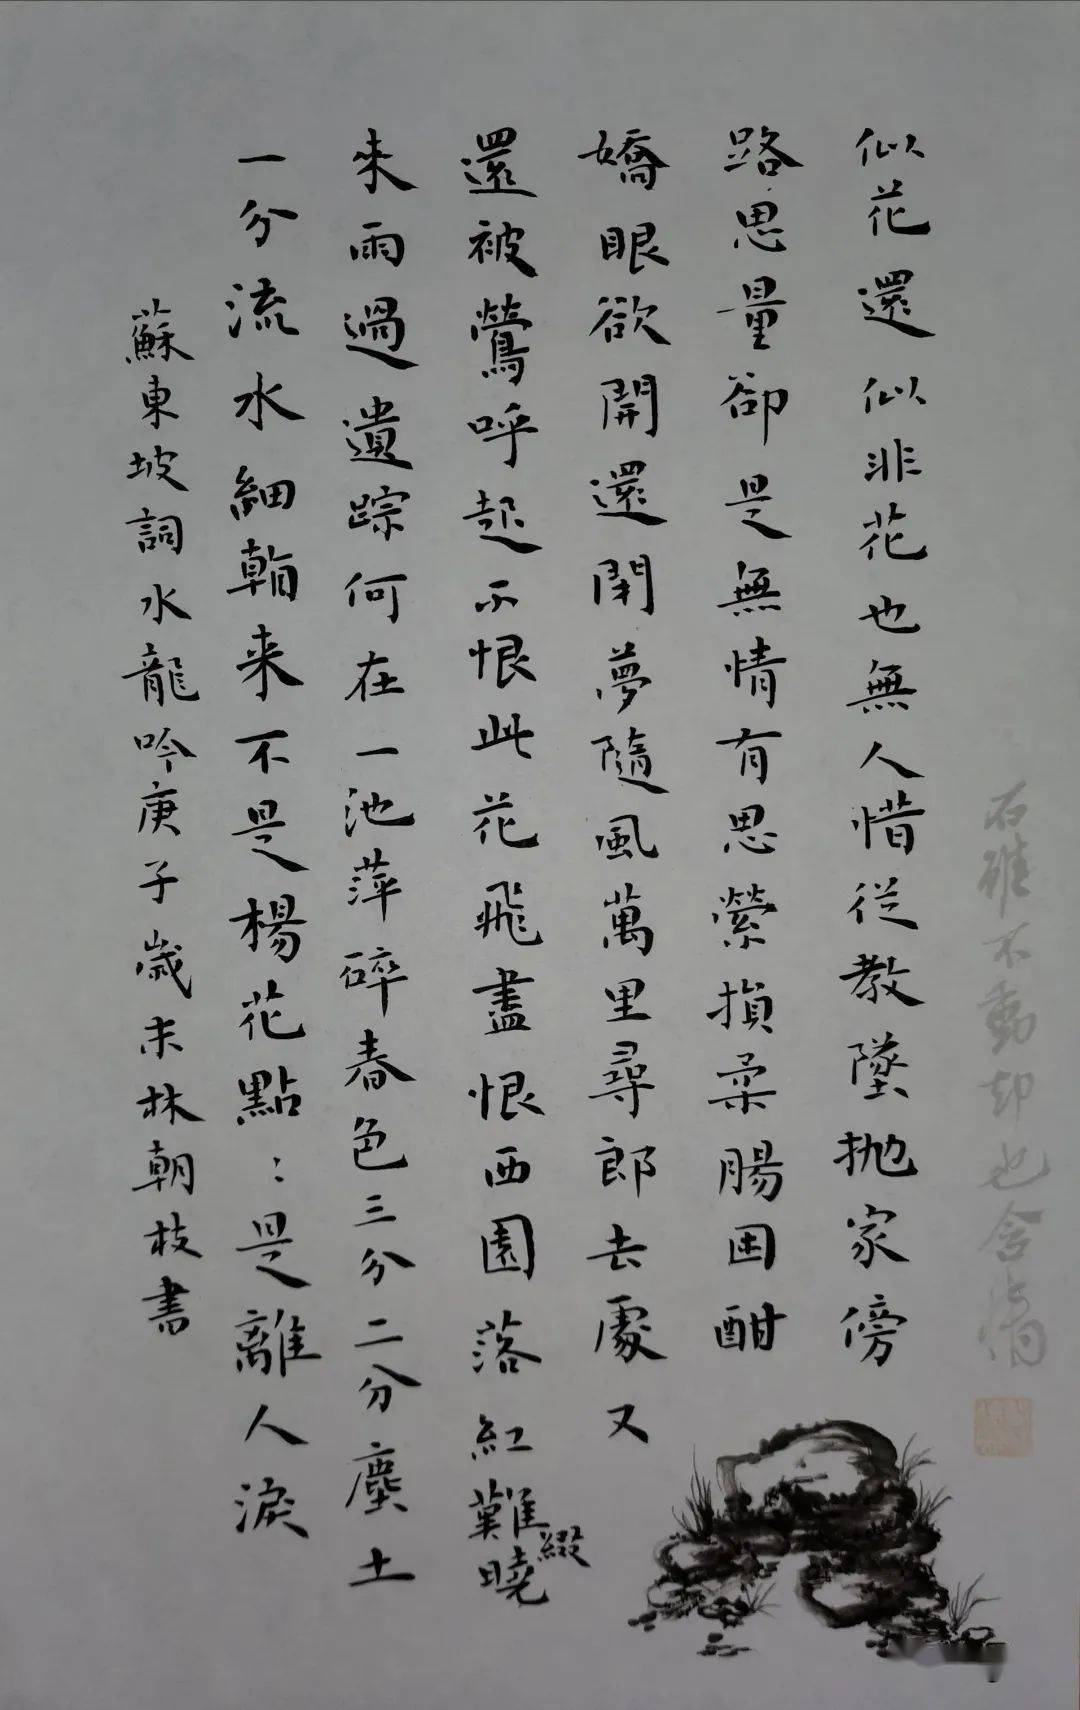 石雖不動却也含情
似花還似非花也無人惜從教墜抛家傍
路思量卻是無情有思縈損柔腸困酣
嬌眼欲開還閉夢隨風萬里尋郎去處又
還被鶯呼起不恨此花飛盡恨西園落紅難綴曉
來雨過遺踪何在一池萍碎春色三分二分塵土
一分流水細看來不是楊花點：是離人淚
蘇東坡詞水龍吟庚子歲末林朝枝書